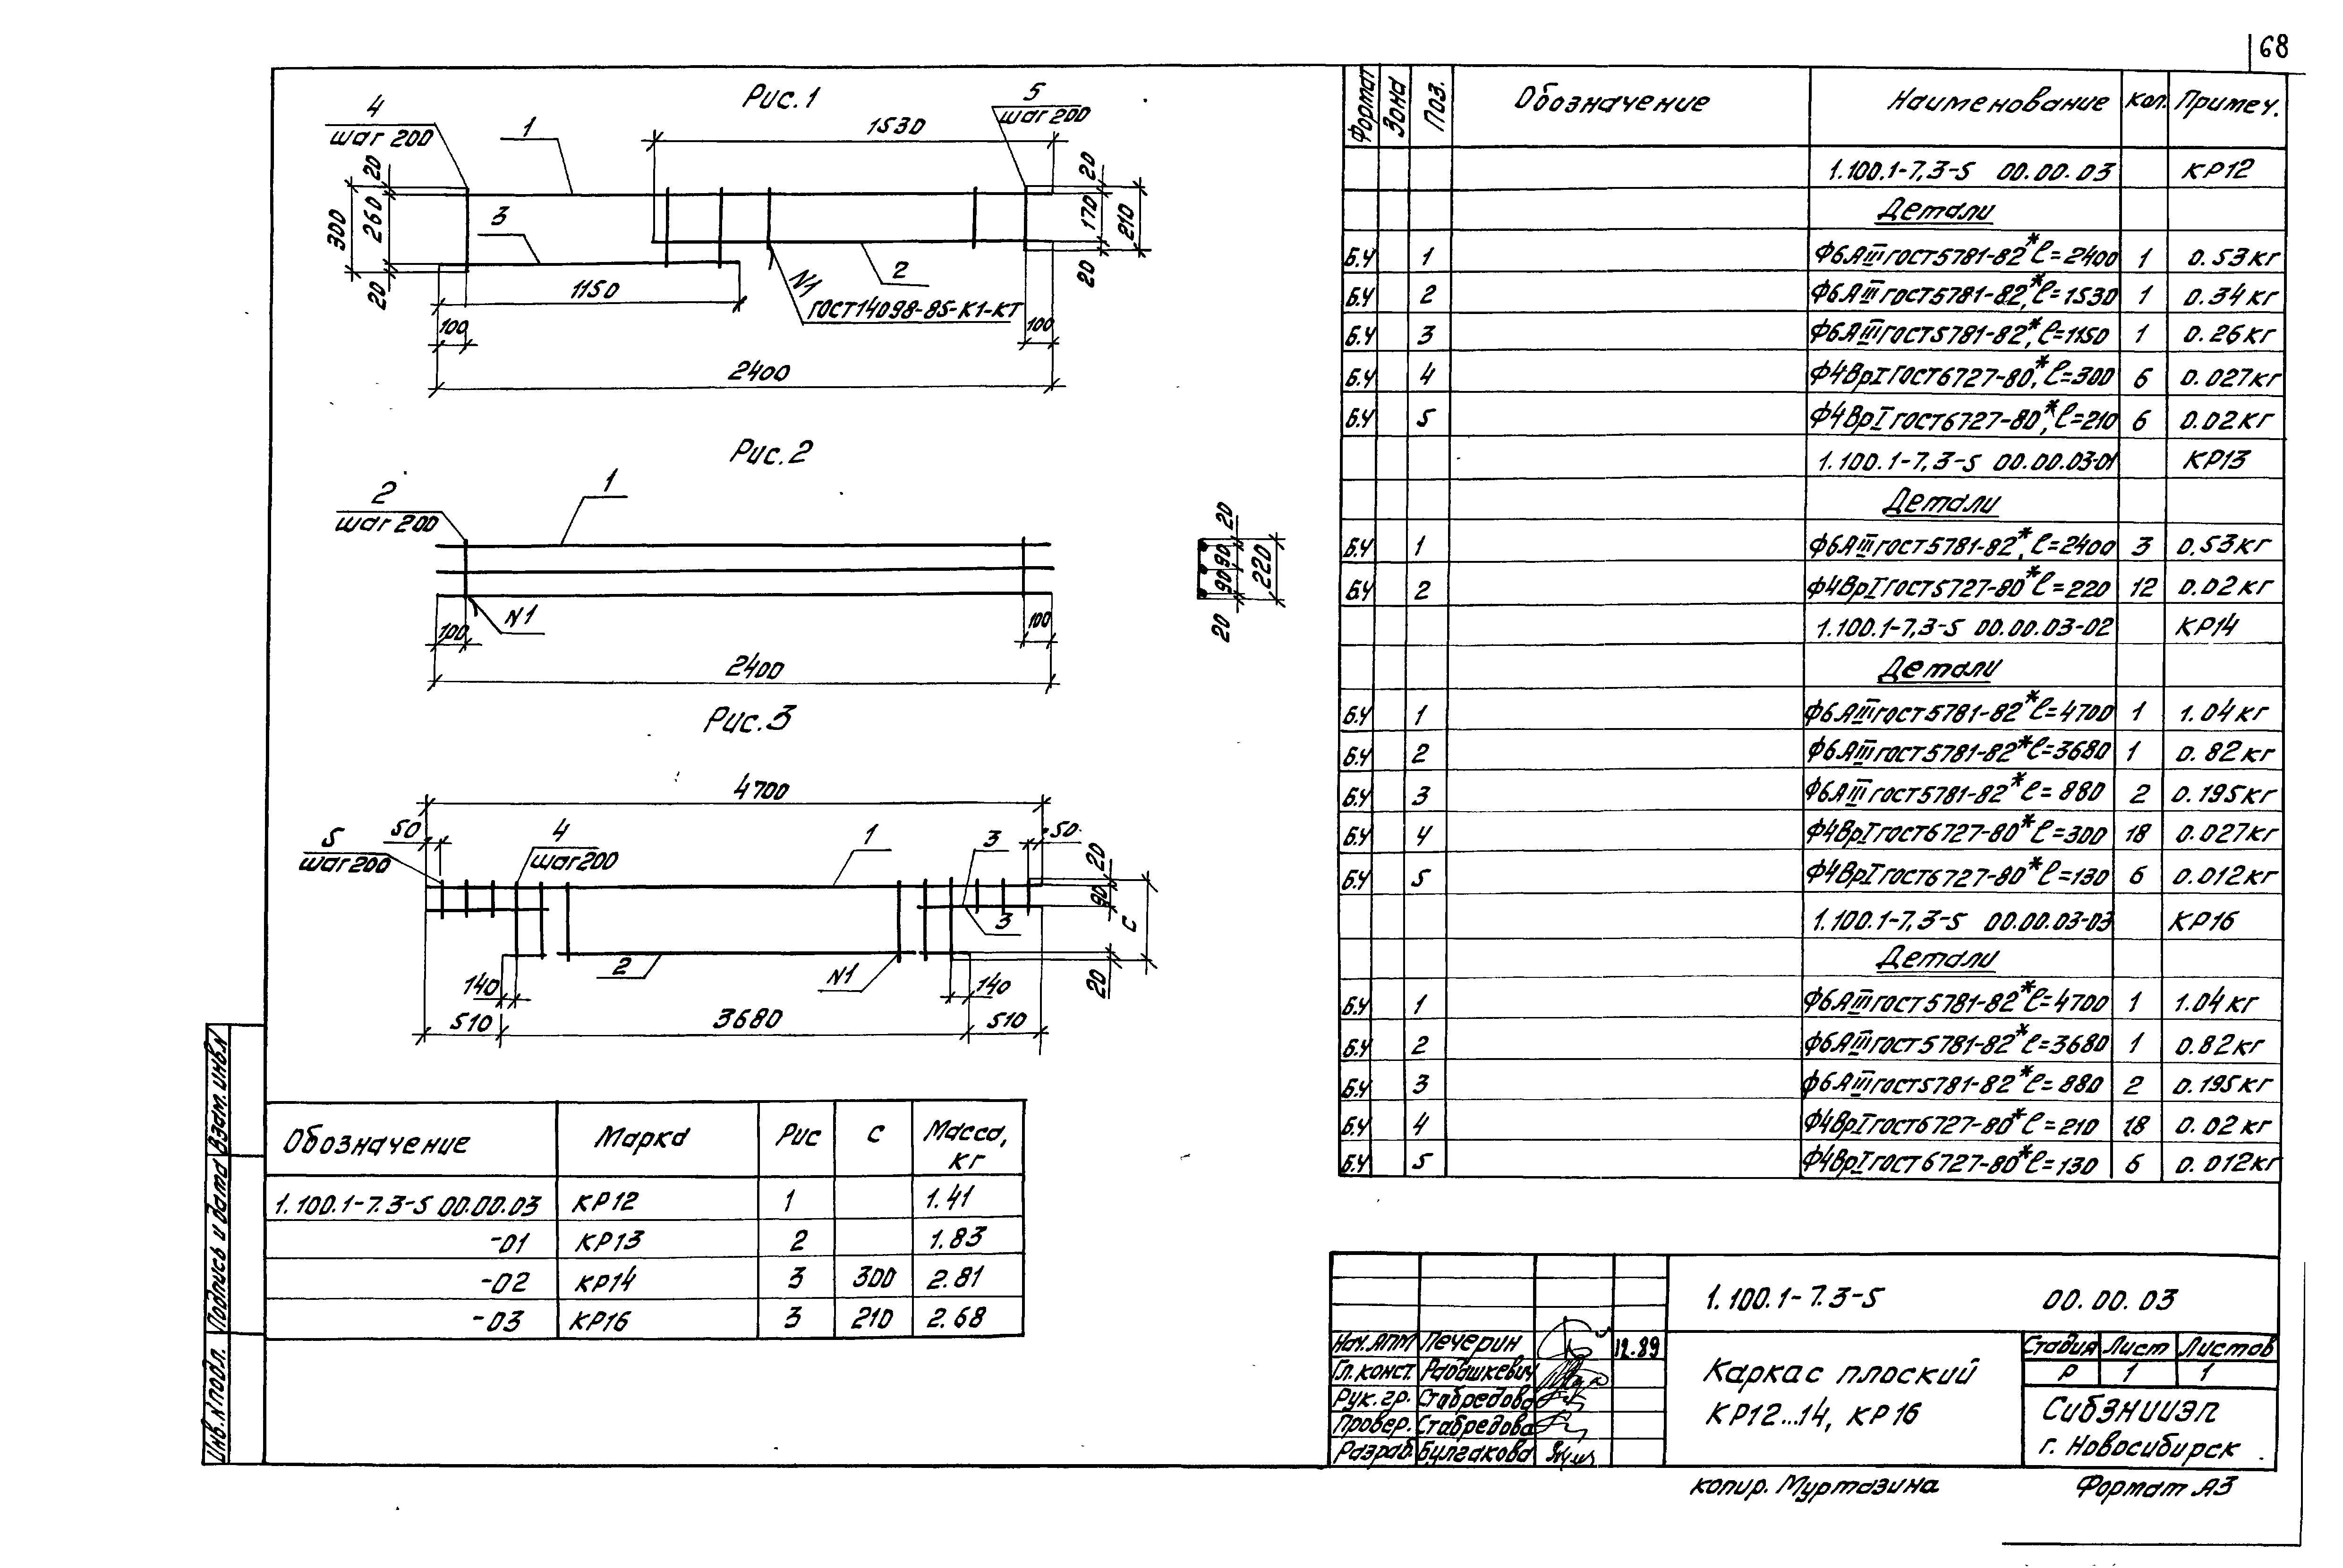 68
Рис. 1
4
шаг 200
1
1530
5
шаг 200
20
260
300
20
3
20
170
210
20
2
N1
ГОСТ14098-85-К1-КТ
1150
100
100
2400
Рис. 2
2
шаг 200
1
N1
100
100
2400
20
90
90
220
20
Рис. 3
4700
50
5
шаг 200
4
шаг 200
1
3
50
20
90
С
3
20
2
N1
140
140
510
3680
510
Обозначение Марка Рис С Масса, кг
1.100.1-7.3-5 00.00.03 КР12 1 1.41
-01 КР13 2 1.83
-02 КР14 3 300 2.81
-03 КР16 3 210 2.68
Формат Зона Поз. Обозначение Наименование Кол. Примеч.
1.100.1-7.3-5 00.00.03 КР12
Детали
Б.Ч 1 Ф6АIII ГОСТ5781-82*, ℓ=2400 1 0.53кг
Б.Ч 2 Ф6АIII ГОСТ5781-82*, ℓ=1530 1 0.34кг
Б.Ч 3 Ф6АIII ГОСТ5781-82*, ℓ=1150 1 0.26кг
Б.Ч 4 Ф4ВрI ГОСТ6727-80*, ℓ=300 6 0.027кг
Б.Ч 5 Ф4ВрI ГОСТ6727-80*, ℓ=210 6 0.02кг
1.100.1-7.3-5 00.00.03-01 КР13
Детали
Б.Ч 1 Ф6АIII ГОСТ5781-82*, ℓ=2400 3 0.53кг
Б.Ч 2 Ф4ВрI ГОСТ5727-80* ℓ=220 12 0.02кг
1.100.1-7.3-5 00.00.03-02 КР14
Детали
Б.Ч 1 Ф6АIII ГОСТ5781-82* ℓ=4700 1 1.04кг
Б.Ч 2 Ф6АIII ГОСТ5781-82* ℓ=3680 1 0.82кг
Б.Ч 3 Ф6АIII ГОСТ5781-82* ℓ=880 2 0.195кг
Б.Ч 4 Ф4ВрI ГОСТ6727-80* ℓ=300 18 0.027кг
Б.Ч 5 Ф4ВрI ГОСТ6727-80* ℓ=130 6 0.012кг
1.100.1-7.3-5 00.00.03-03 КР16
Детали
Б.Ч 1 Ф6АIII ГОСТ5781-82* ℓ=4700 1 1.04кг
Б.Ч 2 Ф6АIII ГОСТ5781-82* ℓ=3680 1 0.82кг
Б.Ч 3 Ф6АIII ГОСТ5781-82* ℓ=880 2 0.195кг
Б.Ч 4 Ф4ВрI ГОСТ6727-80* ℓ=210 18 0.02кг
Б.Ч 5 Ф4ВрI ГОСТ6727-80* ℓ=130 6 0.012кг
1.100.1-7.3-5 00.00.03
Нач.АПМ Печерин 12.89
Гл.конст. Рабашкевич
Рук.гр. Стабредова
Провер. Стабредова
Разраб. Булгакова
Каркас плоский
КР12...14, КР16
Стадия Лист Листов
Р 1 1
СибЗНИИЭП
г. Новосибирск
копир. Муртазина Формат А3
Инв.N подл. Подпись и дата Взам. инв.N